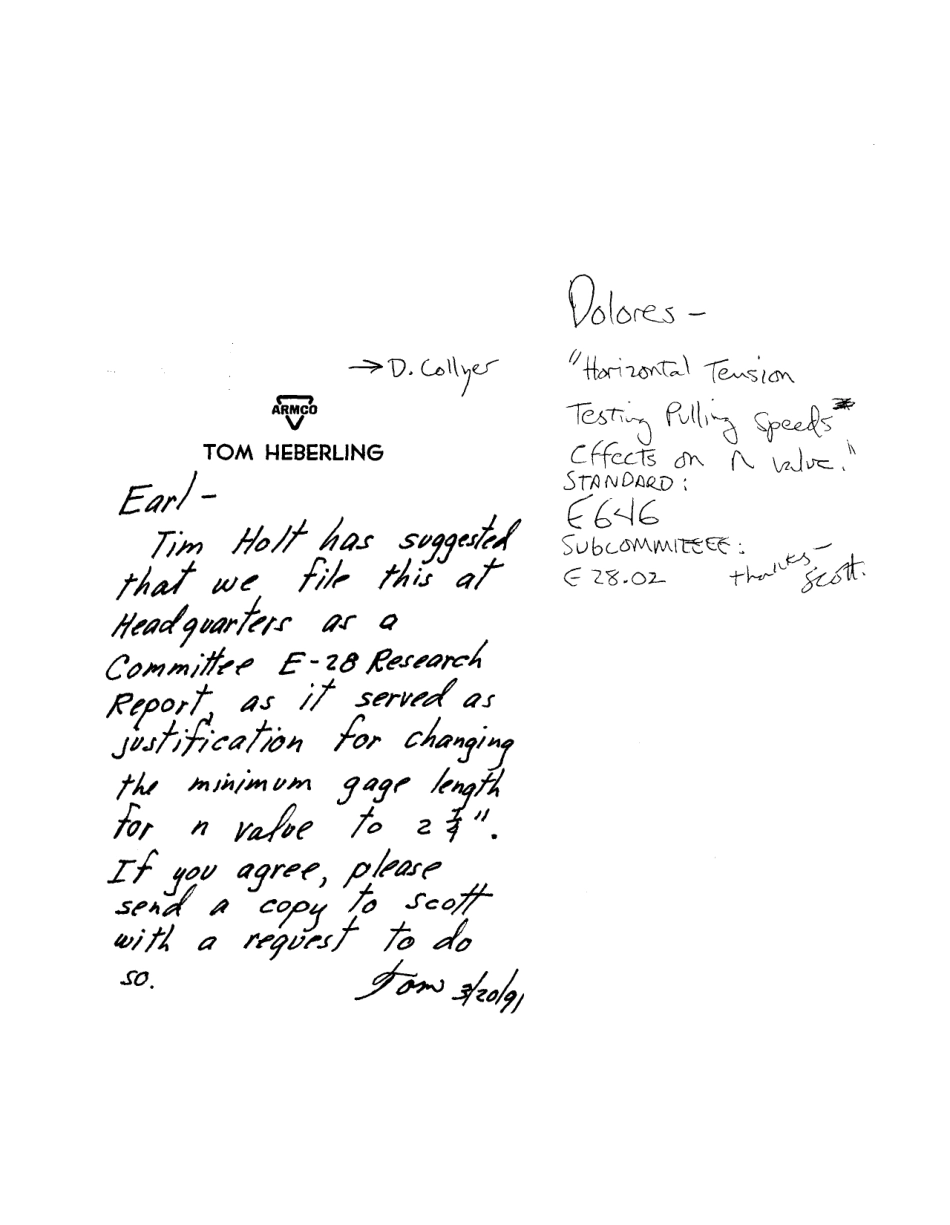 → D. Collyer
ARMCO
TOM HEBERLING
Earl –
Tim Holt has suggested
that we file this at
Headquarters as a
Committee E-28 Research
Report, as it served as
justification for changing
the minimum gage length
for n value to 2 1/4".
If you agree, please
send a copy to Scott
with a request to do
so.
Tom 3/20/91
Dolores –
"Horizontal Tension
Testing Pulling Speeds
Effects on n value."
STANDARD:
E646
SUBCOMMITEEE:
E 28.02
thanks –
Scott.